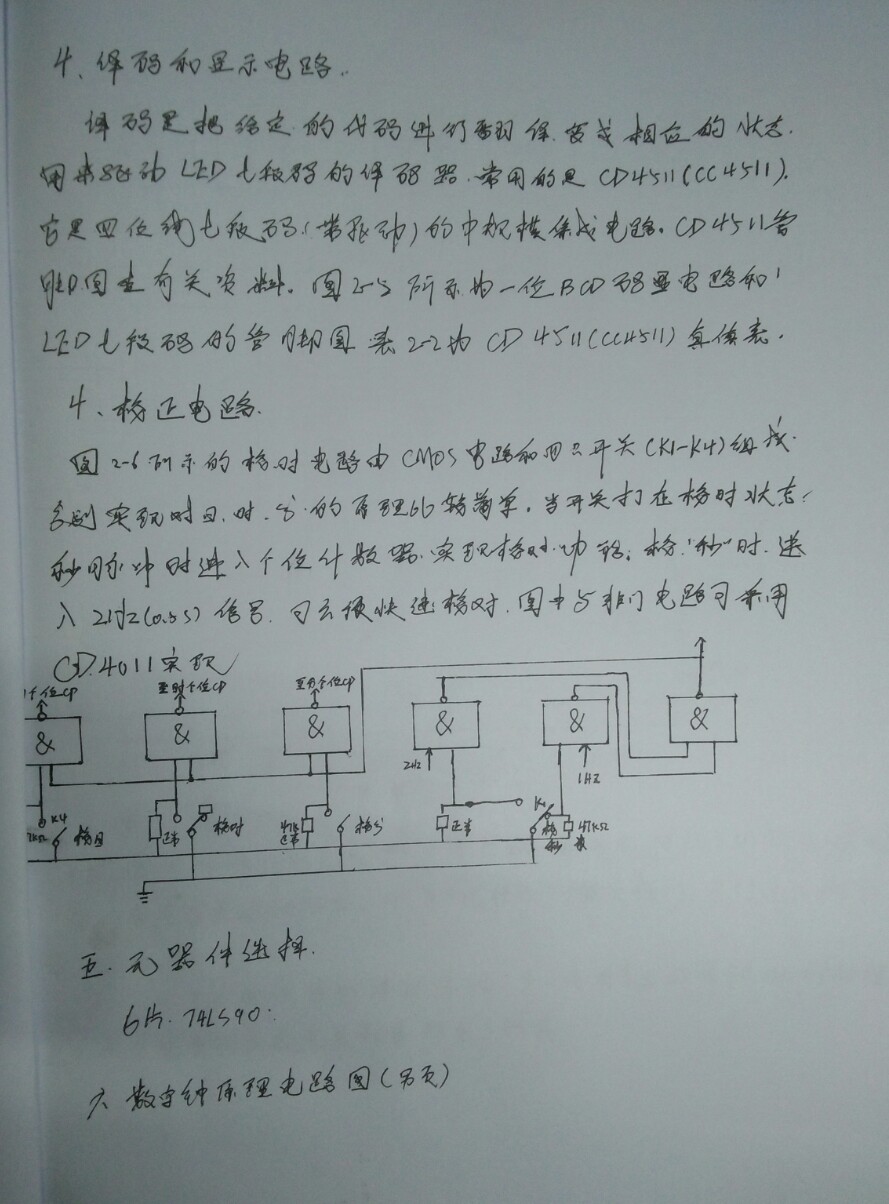 4、译码和显示电路.
译码是把给定的代码进行翻译,变成相应的状态.
用来驱动LED七段码的译码器.常用的是CD4511(CC4511).
它是四位线七段码(带驱动)的中规模集成电路。CD4511管
脚图查有关资料。图2-5所示为一位BCD码显电路和
LED七段码的管脚图 表2-2为CD4511(CC4511)真值表.
4、校正电路.
图2-6所示的校时电路由CMOS电路和四只开关(K1-K4)组成.
分别实现对日.时.分.的原理比较简单。当开关打在校时状态.
秒脉冲时进入个位计数器.实现校对功能;校"秒"时.送
入2Hz(0.5s)信号.可方便快速校对.图中与非门电路可采用
CD4011实现
个位CP 至时个位CP 至分个位CP
& & & & & &
2Hz 1HZ
K4 校日 正常 校时 47K 正常 校分 正常 K1 校秒 47KΩ
五.元器件选择.
6片.74LS90.
六 数字钟原理电路图(另页)